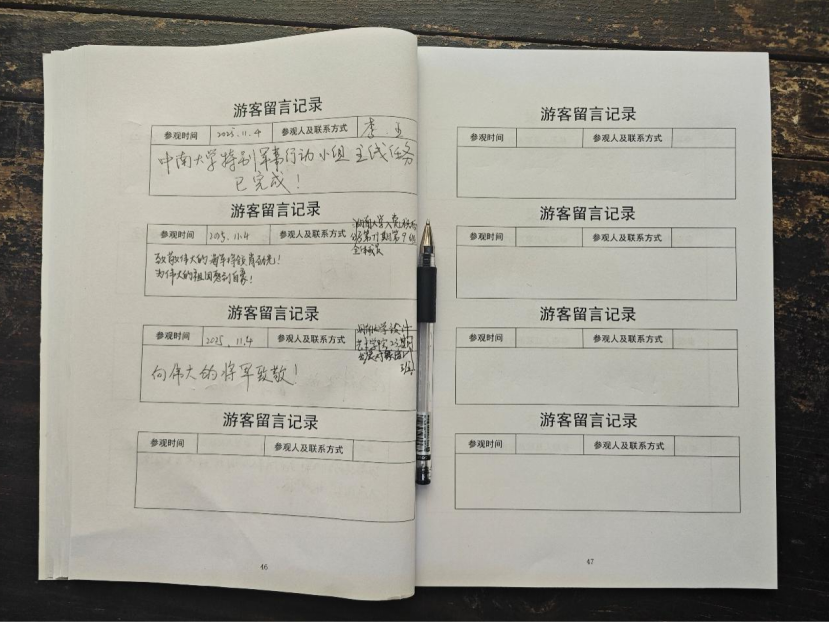 游客留言记录
参观时间 2025.11.4 参观人及联系方式 李
中南大学特别军事行动小组 主线任务
已完成！
游客留言记录
参观时间 2025.11.4 参观人及联系方式
致敬伟大的
为伟大的祖国感到自豪！
游客留言记录
参观时间 2025.11.4 参观人及联系方式
向伟大的将军致敬！
游客留言记录
参观时间 参观人及联系方式
46
游客留言记录
参观时间 参观人及联系方式
游客留言记录
参观时间 参观人及联系方式
游客留言记录
参观时间 参观人及联系方式
游客留言记录
参观时间 参观人及联系方式
47